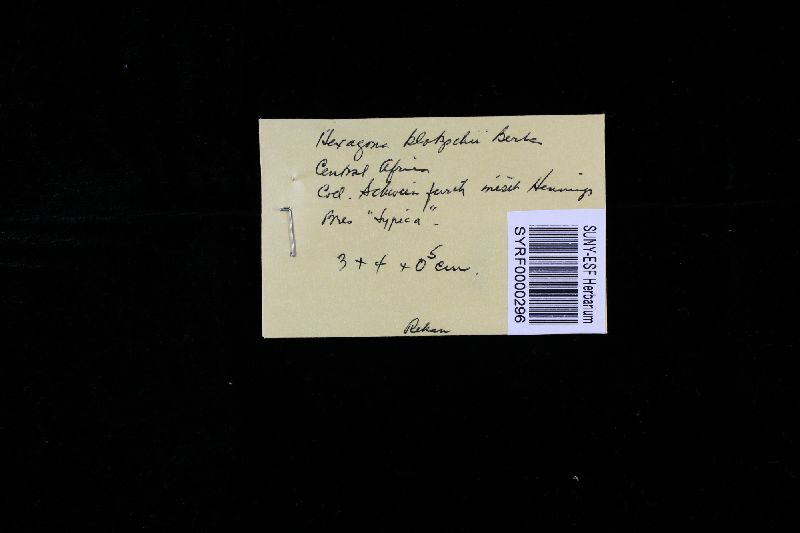 Hexagona klotzschii Berk
Central Africa
Coll. Schweinfurth misit Hennings
Bres "typica".
3 + 4 + 0⁵ cm.
Rehan
SUNY-ESF Herbarium
SYRF0000296